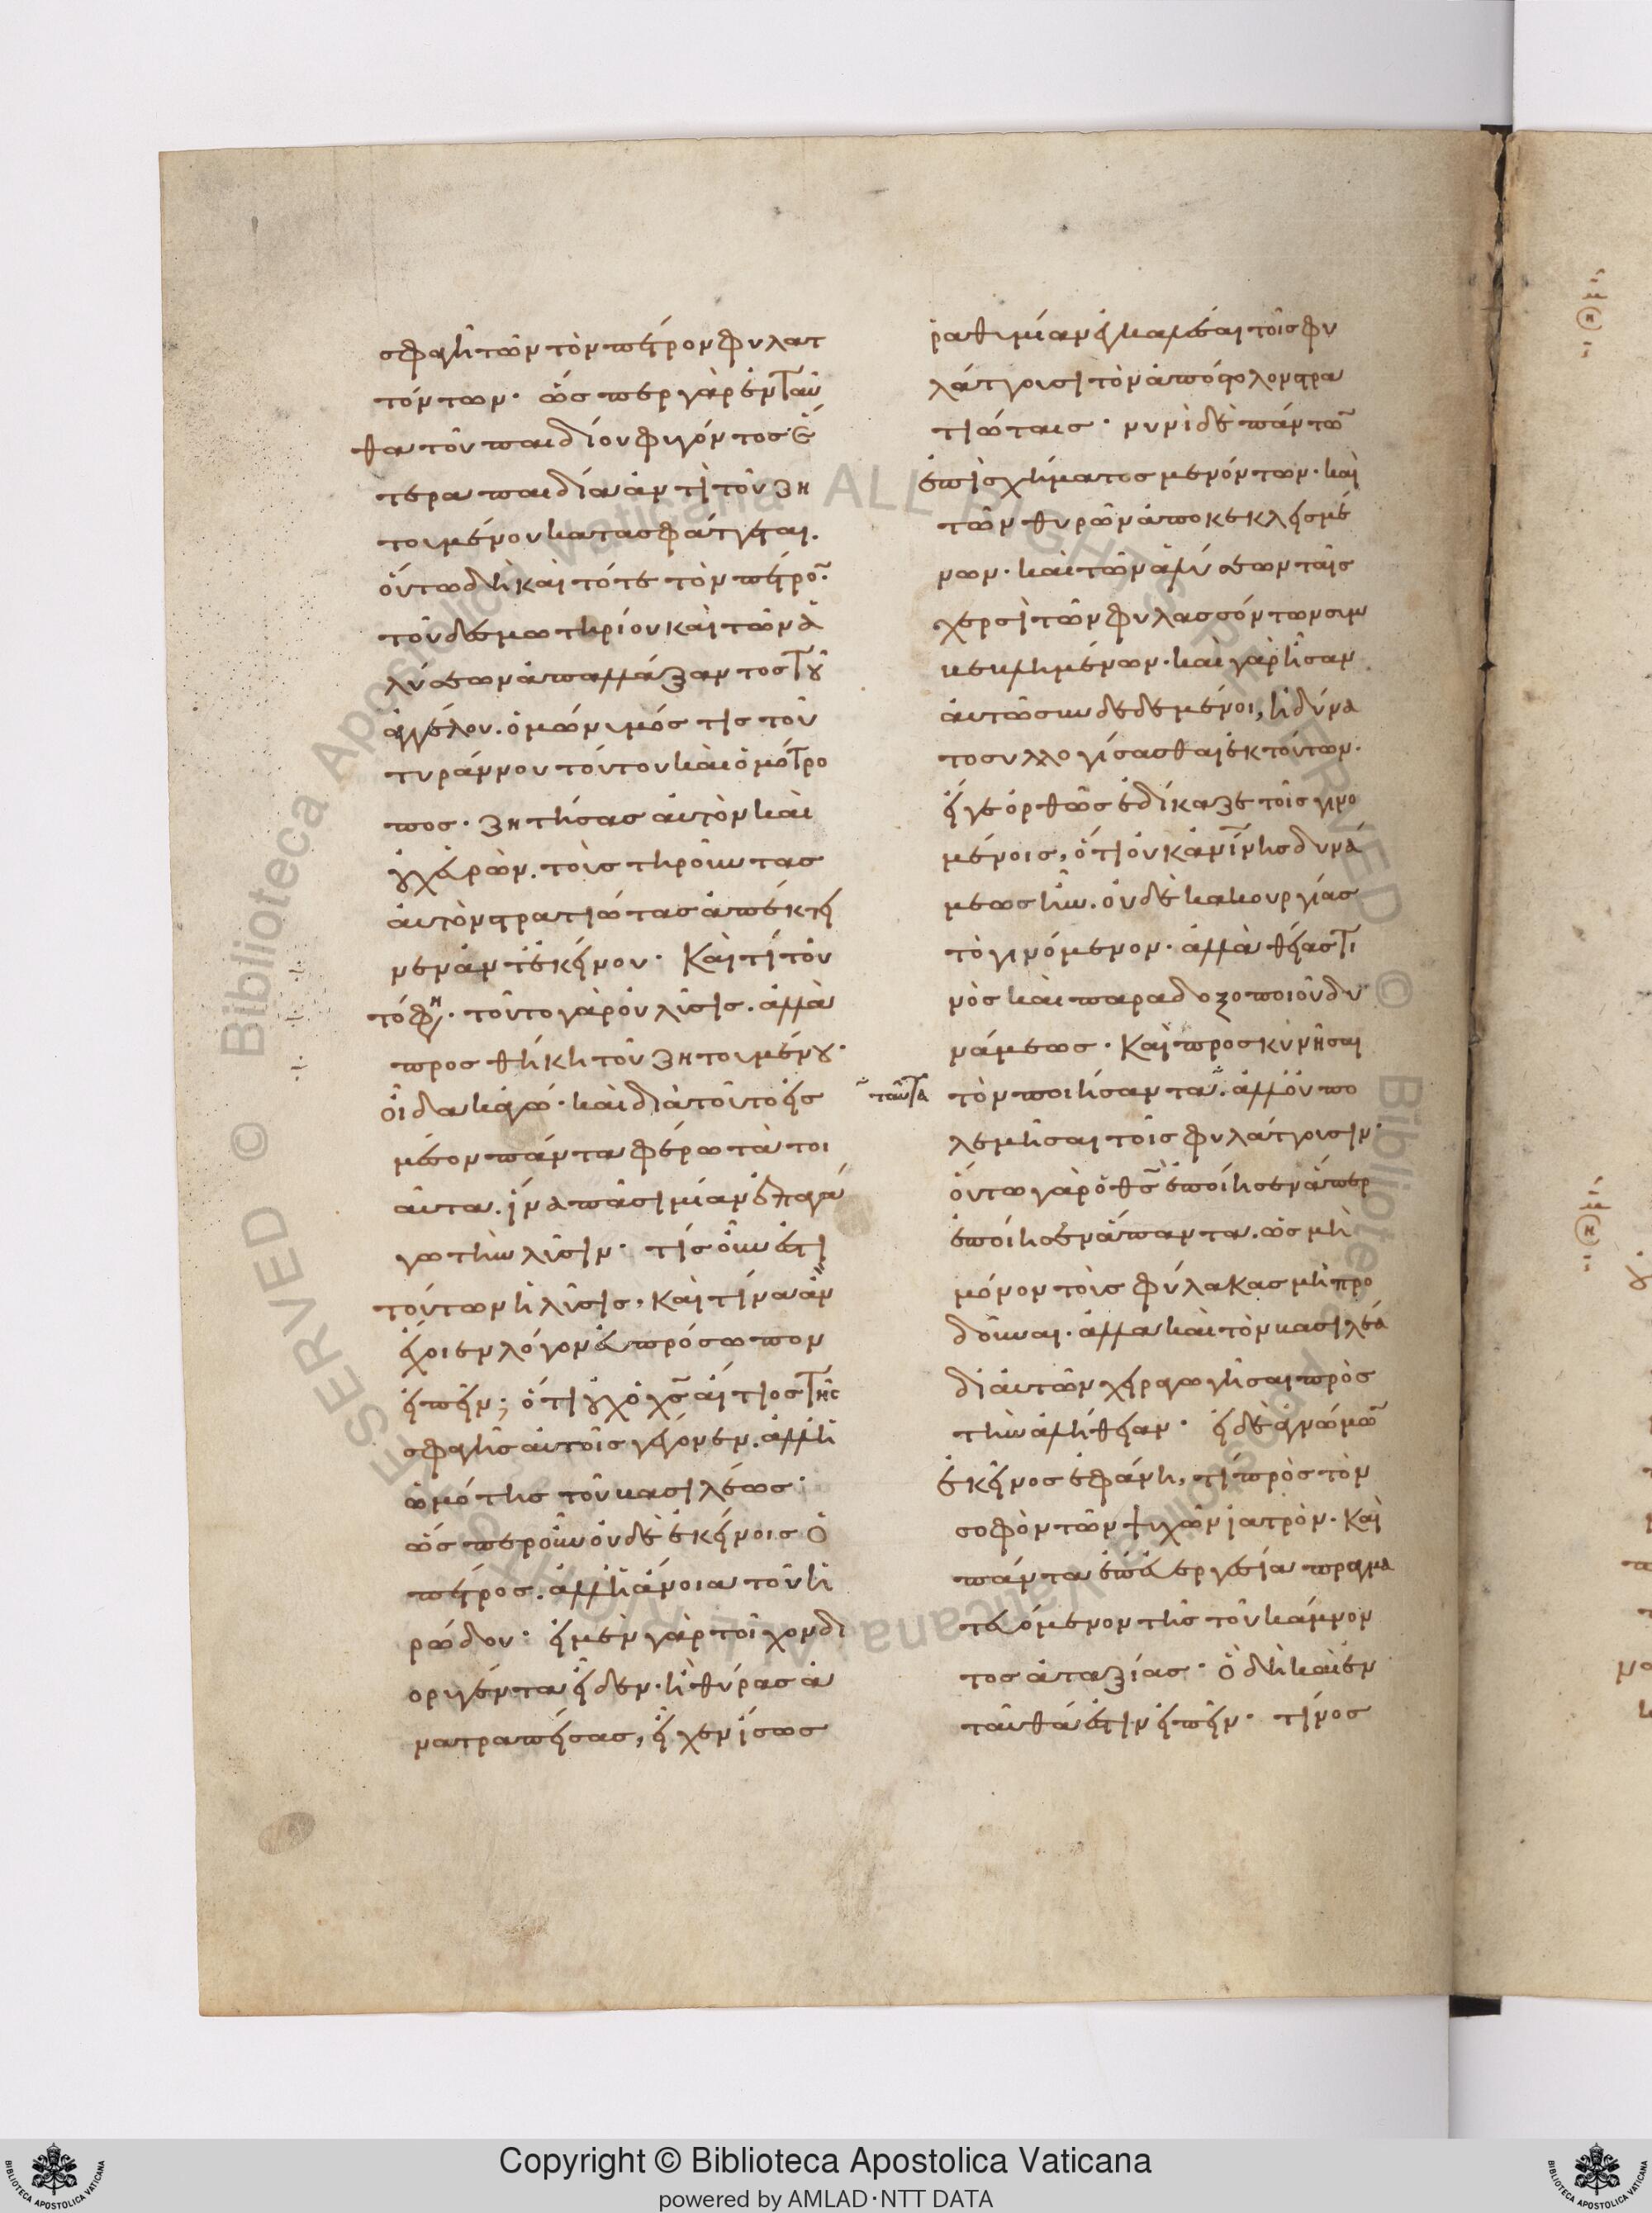 σφαγῆ τῶν τὸν πέτρον φυλατ
τόντων· ὥσπερ γὰρ ἐνταῦ
θα τοῦ παιδίου φυγόντος ἕ
τερα παιδία ἀντὶ τοῦ ζη
τουμένου κατασφάττεται.
οὕτω δὴ καὶ τότε τὸν πέτρον
τοῦ δεσμωτηρίου καὶ τῶν ἁ
λύσεων ἀπαλλάξαντος τοῦ
ἀγγέλου. ὁμώνυμός τις τοῦ
τυράννου τούτου καὶ ὁμότρο
πος. ζητήσας αὐτὸν καὶ
οὐχ εὑρών. τοὺς τηροῦντας
αὐτὸν στρατιώτας ἀπέκτει
νεν ἀντ' ἐκείνου· Καὶ τί τοῦ
τό φησι· τοῦτο γὰρ οὐ λύσις. ἀλλὰ
προσθήκη τοῦ ζητουμένου·
οἶδα κἀγώ· καὶ διὰ τοῦτο εἰς
μέσον πάντα φέρω τὰ τοι
αῦτα. ἵνα πᾶσι μίαν ἐπαγά
γω τὴν λύσιν· τίς οὖν ἐστι
τούτων ἡ λύσις, καὶ τίνα ἂν
ἔχοιμεν λόγον εὐπρόσωπον
εἰπεῖν; ὅτι οὐχ ὁ χς αἴτιος τῆς
σφαγῆς αὐτοῖς γέγονεν. ἀλλ' ἡ
ὠμότης τοῦ βασιλέως·
ὥσπερ οὖν οὐδὲ ἐκείνοις ὁ
πέτρος. ἀλλ' ἡ ἄνοια τοῦ ἡ
ρώδου· εἰ μὲν γὰρ τοῖχον δι
ορυγέντα εἶδεν. ἢ θύρας ἀ
νατραπείσας, εἶχεν ἴσως
ῥαθυμίαν ἐγκαλέσαι τοῖς φυ
λάττουσι τὸν ἀπόστολον στρα
τιώταις· νυνὶ δὲ πάντων
ἐπὶ σχήματος μενόντων· καὶ
τῶν θυρῶν ἀποκεκλεισμέ
νων. καὶ τῶν ἁλύσεων ταῖς
χερσὶ τῶν φυλασσόντων συμ
βεβλημένων. καὶ γὰρ ἦσαν
αὐτῷ συνδεδεμένοι, ἠδύνα
το συλλογίσασθαι ἐκ τούτων.
εἴγε ὀρθῶς ἐδίκαζε τοῖς γινο
μένοις, ὅτι οὐκ ἀνθρωπίνης δυνά
μεως ἦν. οὐδὲ κακουργίας
τὸ γινόμενον. ἀλλὰ θείας τι
νὸς καὶ παραδοξοποιοῦ δυ
νάμεως. Καὶ προσκυνῆσαι
ταῦτα
τὸν ποιήσαντα. ἀλλ' οὐ πο
λεμῆσαι τοῖς φυλάττουσιν·
οὕτω γὰρ ὁ θς ἐποίησεν ἅπερ
ἐποίησεν ἅπαντα. ὡς μὴ
μόνον τοὺς φύλακας μὴ προ
δοῦναι. ἀλλὰ καὶ τὸν βασιλέα
δι' αὐτῶν χειραγωγῆσαι πρὸς
τὴν ἀλήθειαν· εἰ δὲ ἀγνώμων
ἐκεῖνος ἐφάνη, τί πρὸς τὸν
σοφὸν τῶν ψυχῶν ἰατρόν. καὶ
πάντα ἐπ' εὐεργεσίᾳ πραγμα
τευόμενον τῆς τοῦ κάμνον
τος ἀταξίας· ὃ δὴ καὶ ἐν
ταῦθά ἐστιν εἰπεῖν· τίνος